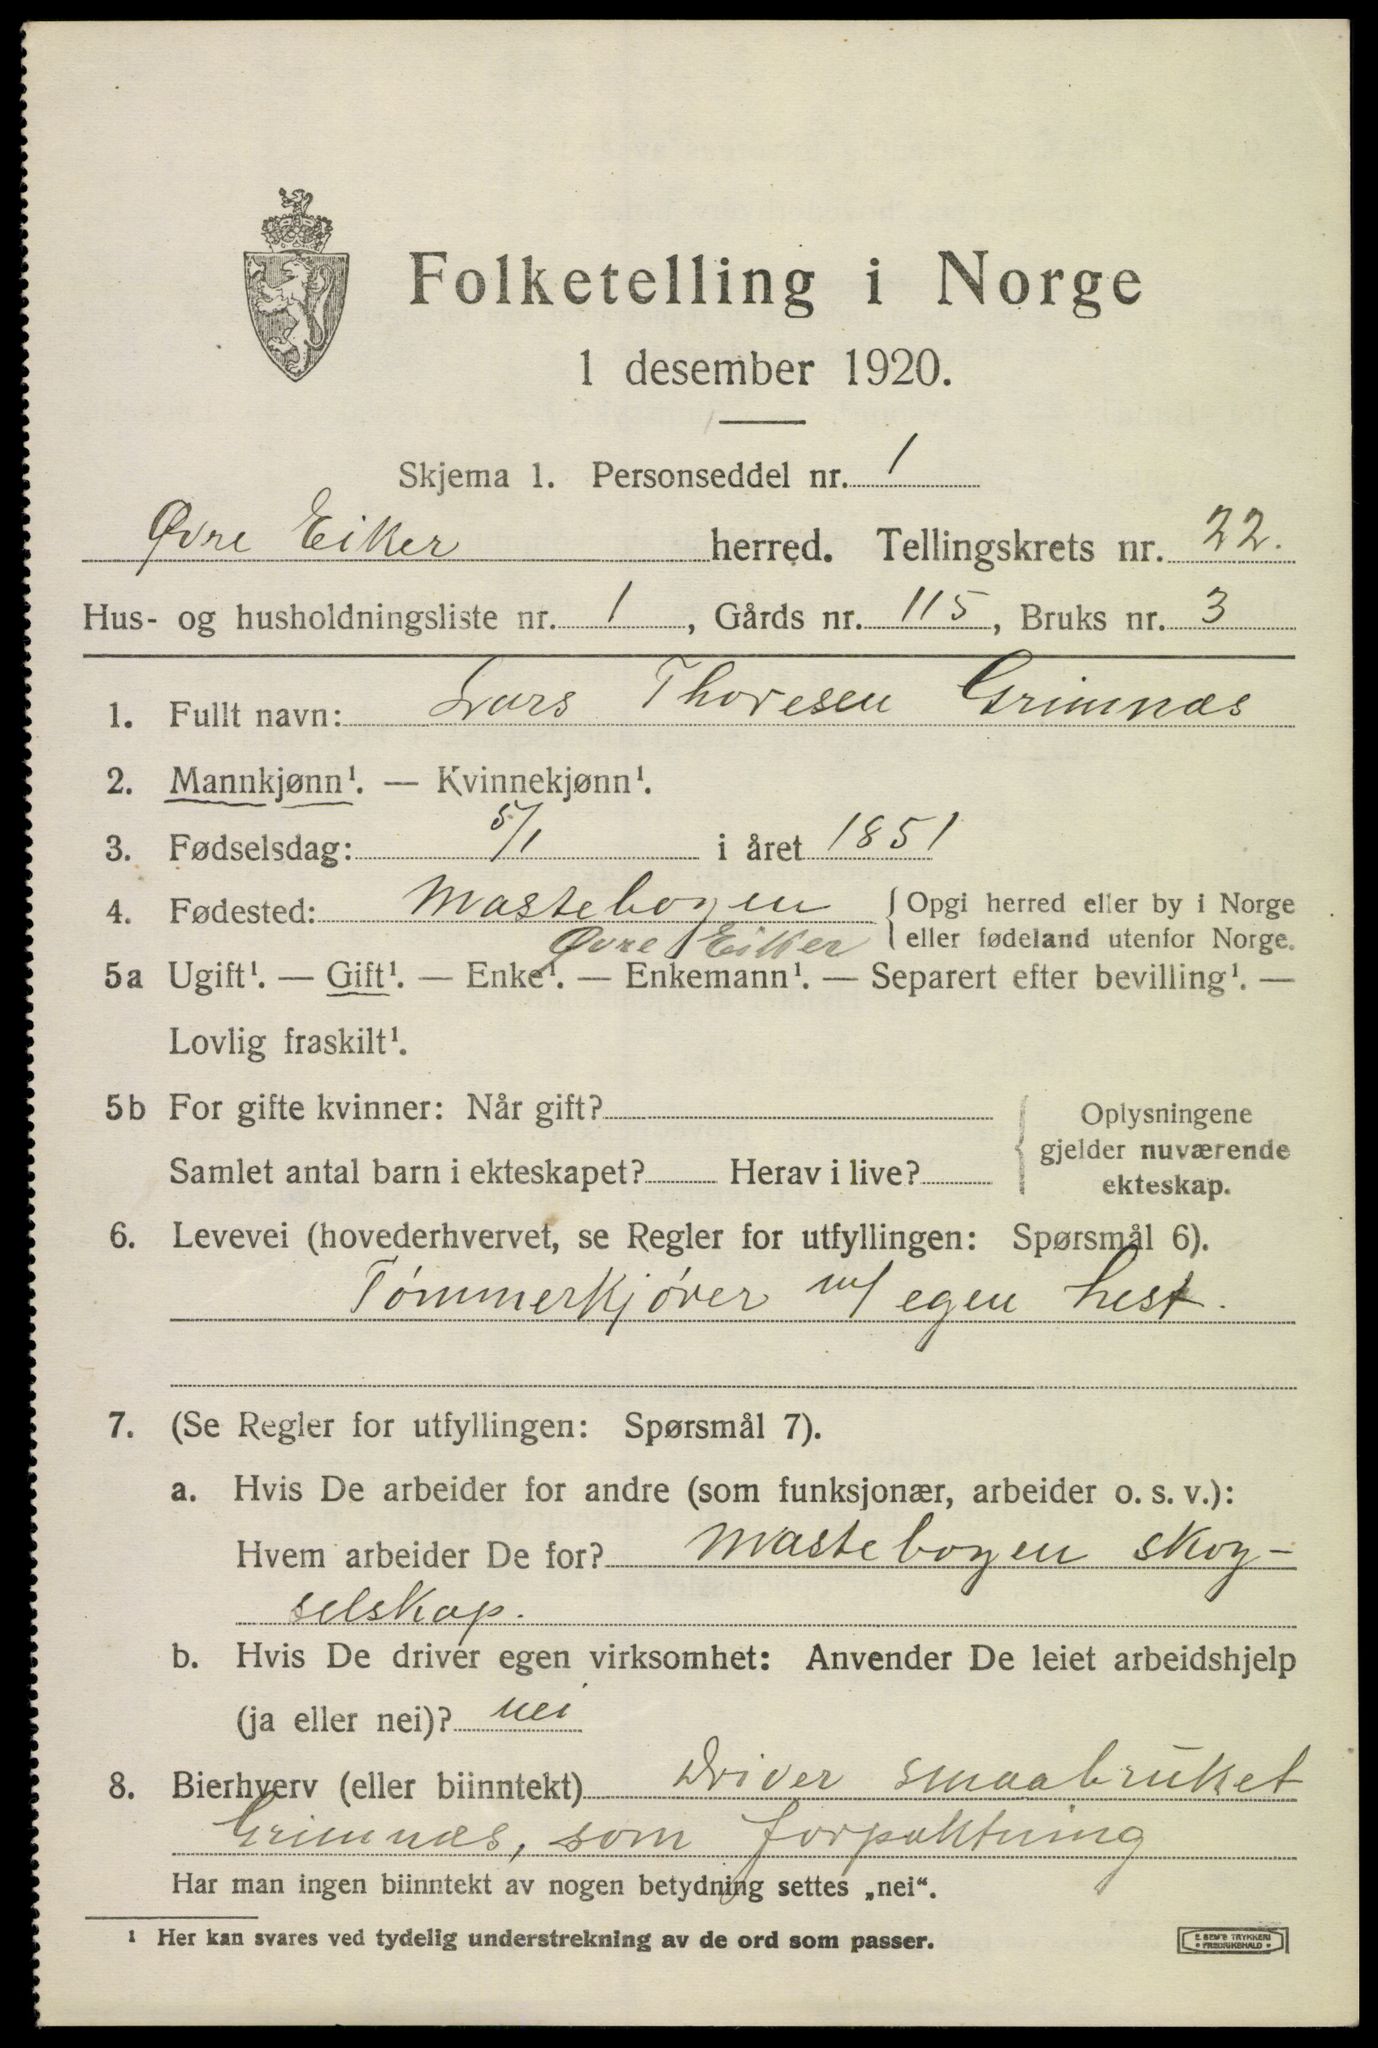 Folketelling i Norge
1 desember 1920.
Skjema 1. Personseddel nr. 1
Øvre Eiker herred. Tellingskrets nr. 22.
Hus- og husholdningsliste nr. 1, Gårds nr. 115, Bruks nr. 3
1. Fullt navn: Lars Thoresen Grimnæs
2. Mannkjønn¹. — Kvinnekjønn¹.
3. Fødselsdag: 5/1 i året 1851
4. Fødested: Mastebogen { Opgi herred eller by i Norge
Øvre Eiker eller fødeland utenfor Norge.
5a Ugift¹. — Gift¹. — Enke¹. — Enkemann¹. — Separert efter bevilling¹. —
Lovlig fraskilt¹.
5b For gifte kvinner: Når gift? { Oplysningene
gjelder nuværende
Samlet antal barn i ekteskapet? Herav i live? ekteskap.
6. Levevei (hovederhvervet, se Regler for utfyllingen: Spørsmål 6).
Tømmerkjører m/ egen hest.
7. (Se Regler for utfyllingen: Spørsmål 7).
a. Hvis De arbeider for andre (som funksjonær, arbeider o. s. v.):
Hvem arbeider De for? Mastebogen skog-
selskap.
b. Hvis De driver egen virksomhet: Anvender De leiet arbeidshjelp
(ja eller nei)? nei
8. Bierhverv (eller biinntekt) Driver smaabruket
Grimnæs, som forpaktning
Har man ingen biinntekt av nogen betydning settes „nei“.
¹ Her kan svares ved tydelig understrekning av de ord som passer.
E. SEM'S TRYKKERI
• FREDRIKSHALD •